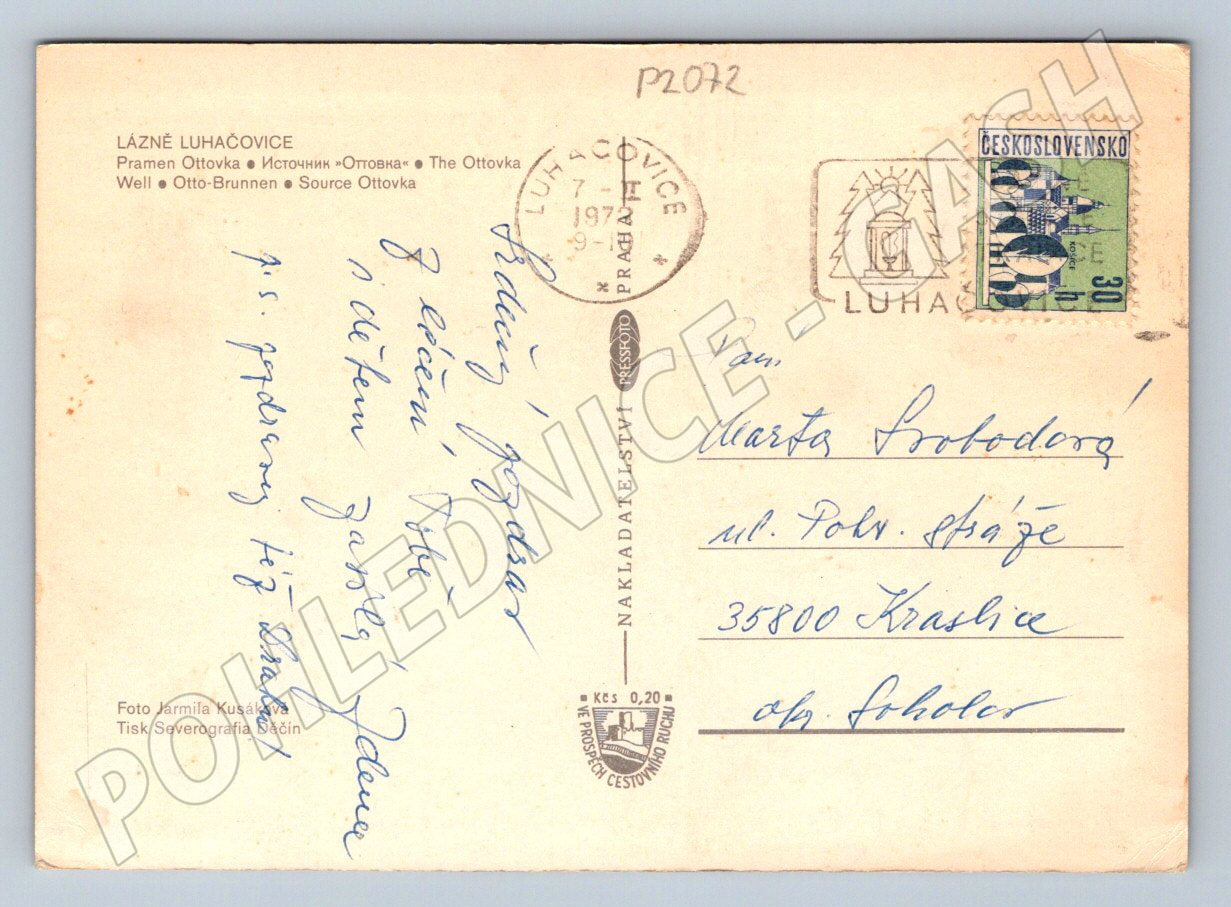 P2072
LÁZNĚ LUHAČOVICE
Pramen Ottovka ● Источник »Оттовка« ● The Ottovka
Well ● Otto-Brunnen ● Source Ottovka
LUHAČOVICE
7 - II
197
9-1
LUHAČOVICE
ČESKOSLOVENSKO
KOŠICE
30
h
Srdečný pozdrav
z léčení Tobě
s dětem zasílá
Zdena
p.s. pozdravuj též
Foto Jarmila Kusáková
Tisk Severografia Děčín
NAKLADATELSTVÍ PRESSFOTO PRAHA
Kčs 0,20
VE PROSPĚCH CESTOVNÍHO RUCHU
Paní
Marta Svobodová
ul. Pohr. stráže
35800 Kraslice
okr. Sokolov
POHLEDNICE - GASH